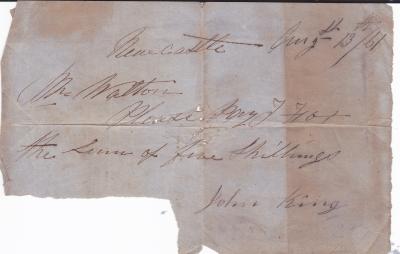 Newcastle Augst 13th/61
Mr Watton
Please Pay J Fox
the Sum of five Shillings
John King